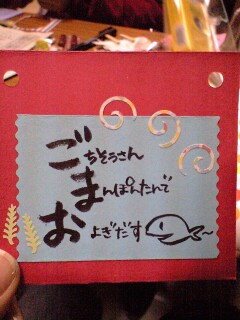 ごちそうさん
まんぽんたんで
およぎだす